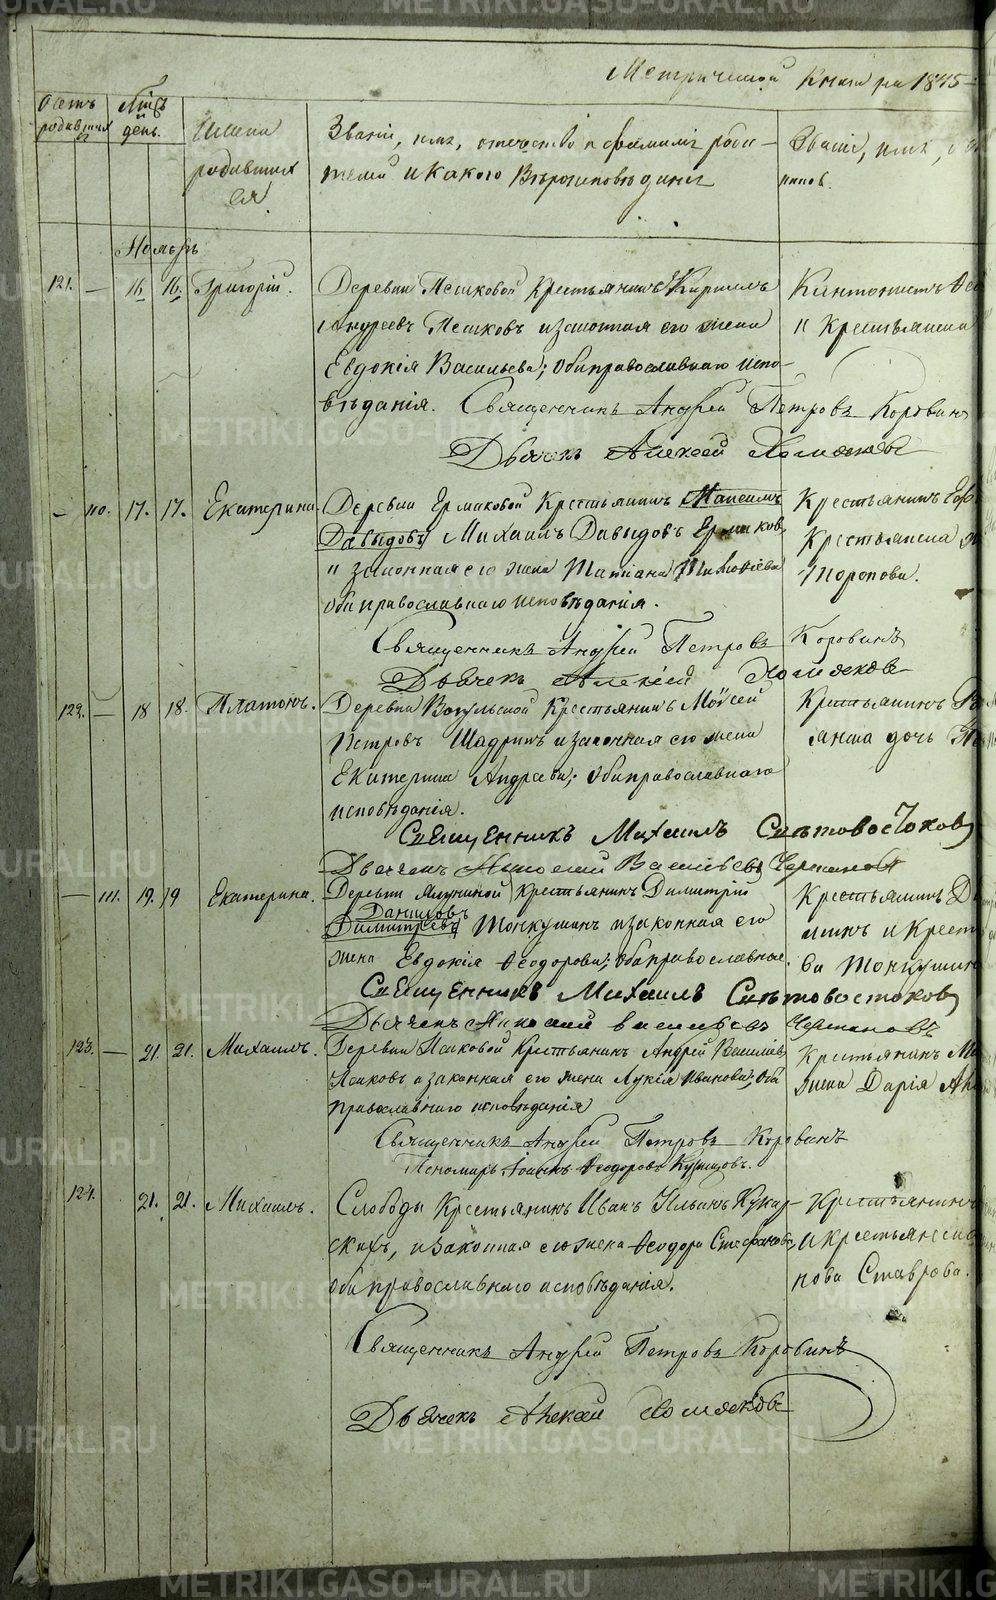 METRIKI.GASO-URAL.RU
Метрической Книги на 1845
Счетъ родившихся
Мѣс. и день.
Имена родившихся
Званіе, имя, отечество и фамилія родителей и какого Вѣроисповѣданія
Званіе, имя,
Ноябрь
121. — 16 16. Григорій. Деревни Пешковой Крестьянинъ Кирилъ Кантонистъ
Андреевъ Пешковъ и законная его жена и Крестьянина
Евдокія Васильева; оба православнаго испо-
вѣданія. Священникъ Андрей Петровъ Коровинъ
Дьячекъ Алексей Хомяковъ
— 110. 17. 17. Екатерина. Деревни Ермаковой Крестьянинъ Максимъ Крестьянинъ
Давыдовъ Михаилъ Давыдовъ Ермаковъ Крестьянина
и законная его жена Татіана Тимофеева Торопова.
оба православнаго исповѣданія.
Священникъ Андрей Петровъ Коровинъ
Дьячекъ Алексей Хомяковъ
122. — 18 18. Платонъ. Деревни Вогульской Крестьянинъ Моисей Крестьянинъ
Петровъ Шадринъ и законная его жена дочь
Екатерина Андреева; оба православнаго
исповѣданія.
Священникъ Михаилъ Свѣтовостоковъ
Дьячекъ Николай Васильевъ
— 111. 19. 19 Екатерина. Деревни Крестьянинъ Димитрій Крестьянинъ
Даниловъ
Димитріевъ Тонкушинъ и законная его и Крест
жена Евдокія Ѳеодорова; оба православные. ва Тонкушин
Священникъ Михаилъ Свѣтовостоковъ
Дьячекъ Николай Васильевъ
123. — 21. 21. Михаилъ. Деревни Исаковой Крестьянинъ Андрей Василіевъ Крестьянинъ
Исаковъ и законная его жена Лукія Иванова; оба жена Дарія
православнаго исповѣданія
Священникъ Андрей Петровъ Коровинъ
Пономарь Іоаннъ Ѳеодоровъ Кузнецовъ.
124. 21. 21. Михаилъ. Слободы Крестьянинъ Иванъ Ильинъ Кукар- Крестьянинъ
скихъ, и законная его жена Ѳеодора Стефанова, и крестьянска
оба православнаго исповѣданія. пова Ставрова.
Священникъ Андрей Петровъ Коровинъ
Дьячекъ Алексей Хомяковъ
METRIKI.GASO-URAL.RU